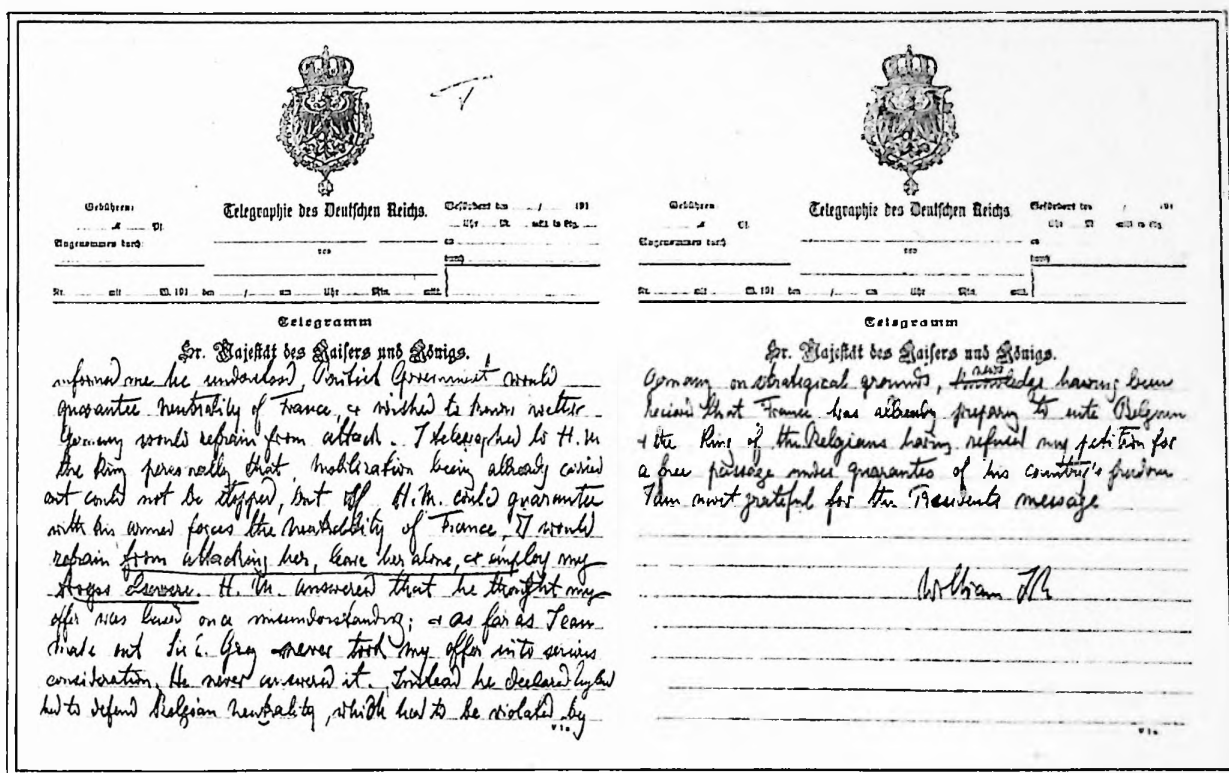 Gebühren:
Telegraphie des Deutschen Reichs.
Befördert den / 191
M Pf.
Uhr M. mitt. in Ltg.
Angenommen durch:
von
an
durch
Nr. mit W. 191 den / um Uhr Min. mitt.
Telegramm
Sr. Majestät des Kaisers und Königs.
informed me he understood, British Government would
guarantee neutrality of France, & wished to know wether
Germany would refrain from attack. I telegraphed to H.M.
the King personally that mobilization being already carried
out could not be stopped, but if H.M. could guarantee
with his armed forces the neutrality of France, I would
refrain from attacking her, leave her alone, & employ my
elsewere. H. M. answered that he thought my
offer was based on a misunderstanding; & as far as I can
make out Sir E. Grey never took my offer into serious
consideration. He never answered it. Instead he declared England
had to defend Belgian neutrality, which had to be violated by
Gebühren
Telegraphie des Deutschen Reichs.
Befördert den / 191
M Pf.
Uhr M mitt. in Ltg.
Angenommen durch
von
an
durch
Nr. mit W. 191 den / um Uhr Min. mitt.
Telegramm
Sr. Majestät des Kaisers und Königs.
Germany on strategical grounds, news having been
received that France was already preparing to enter Belgium
& the King of the Belgians having refused my petition for
a free passage under guarantee of his country's freedom
I am most grateful for the Presidents message
William IR